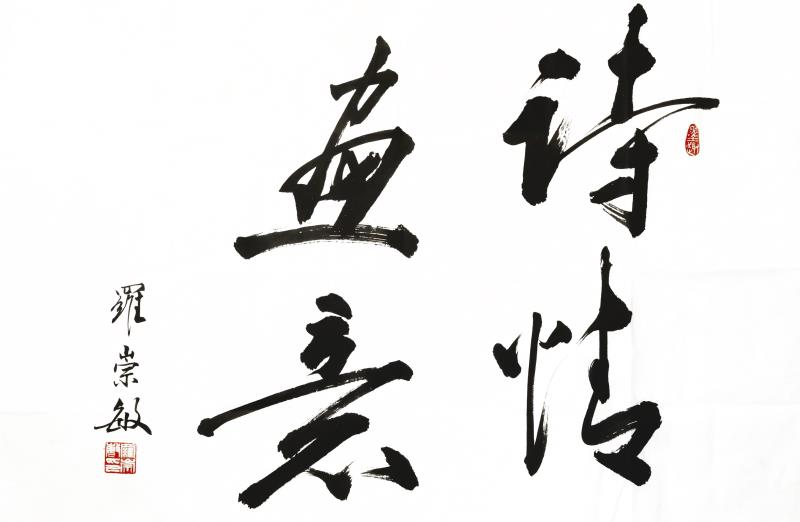 詩情
畫意
羅崇敏